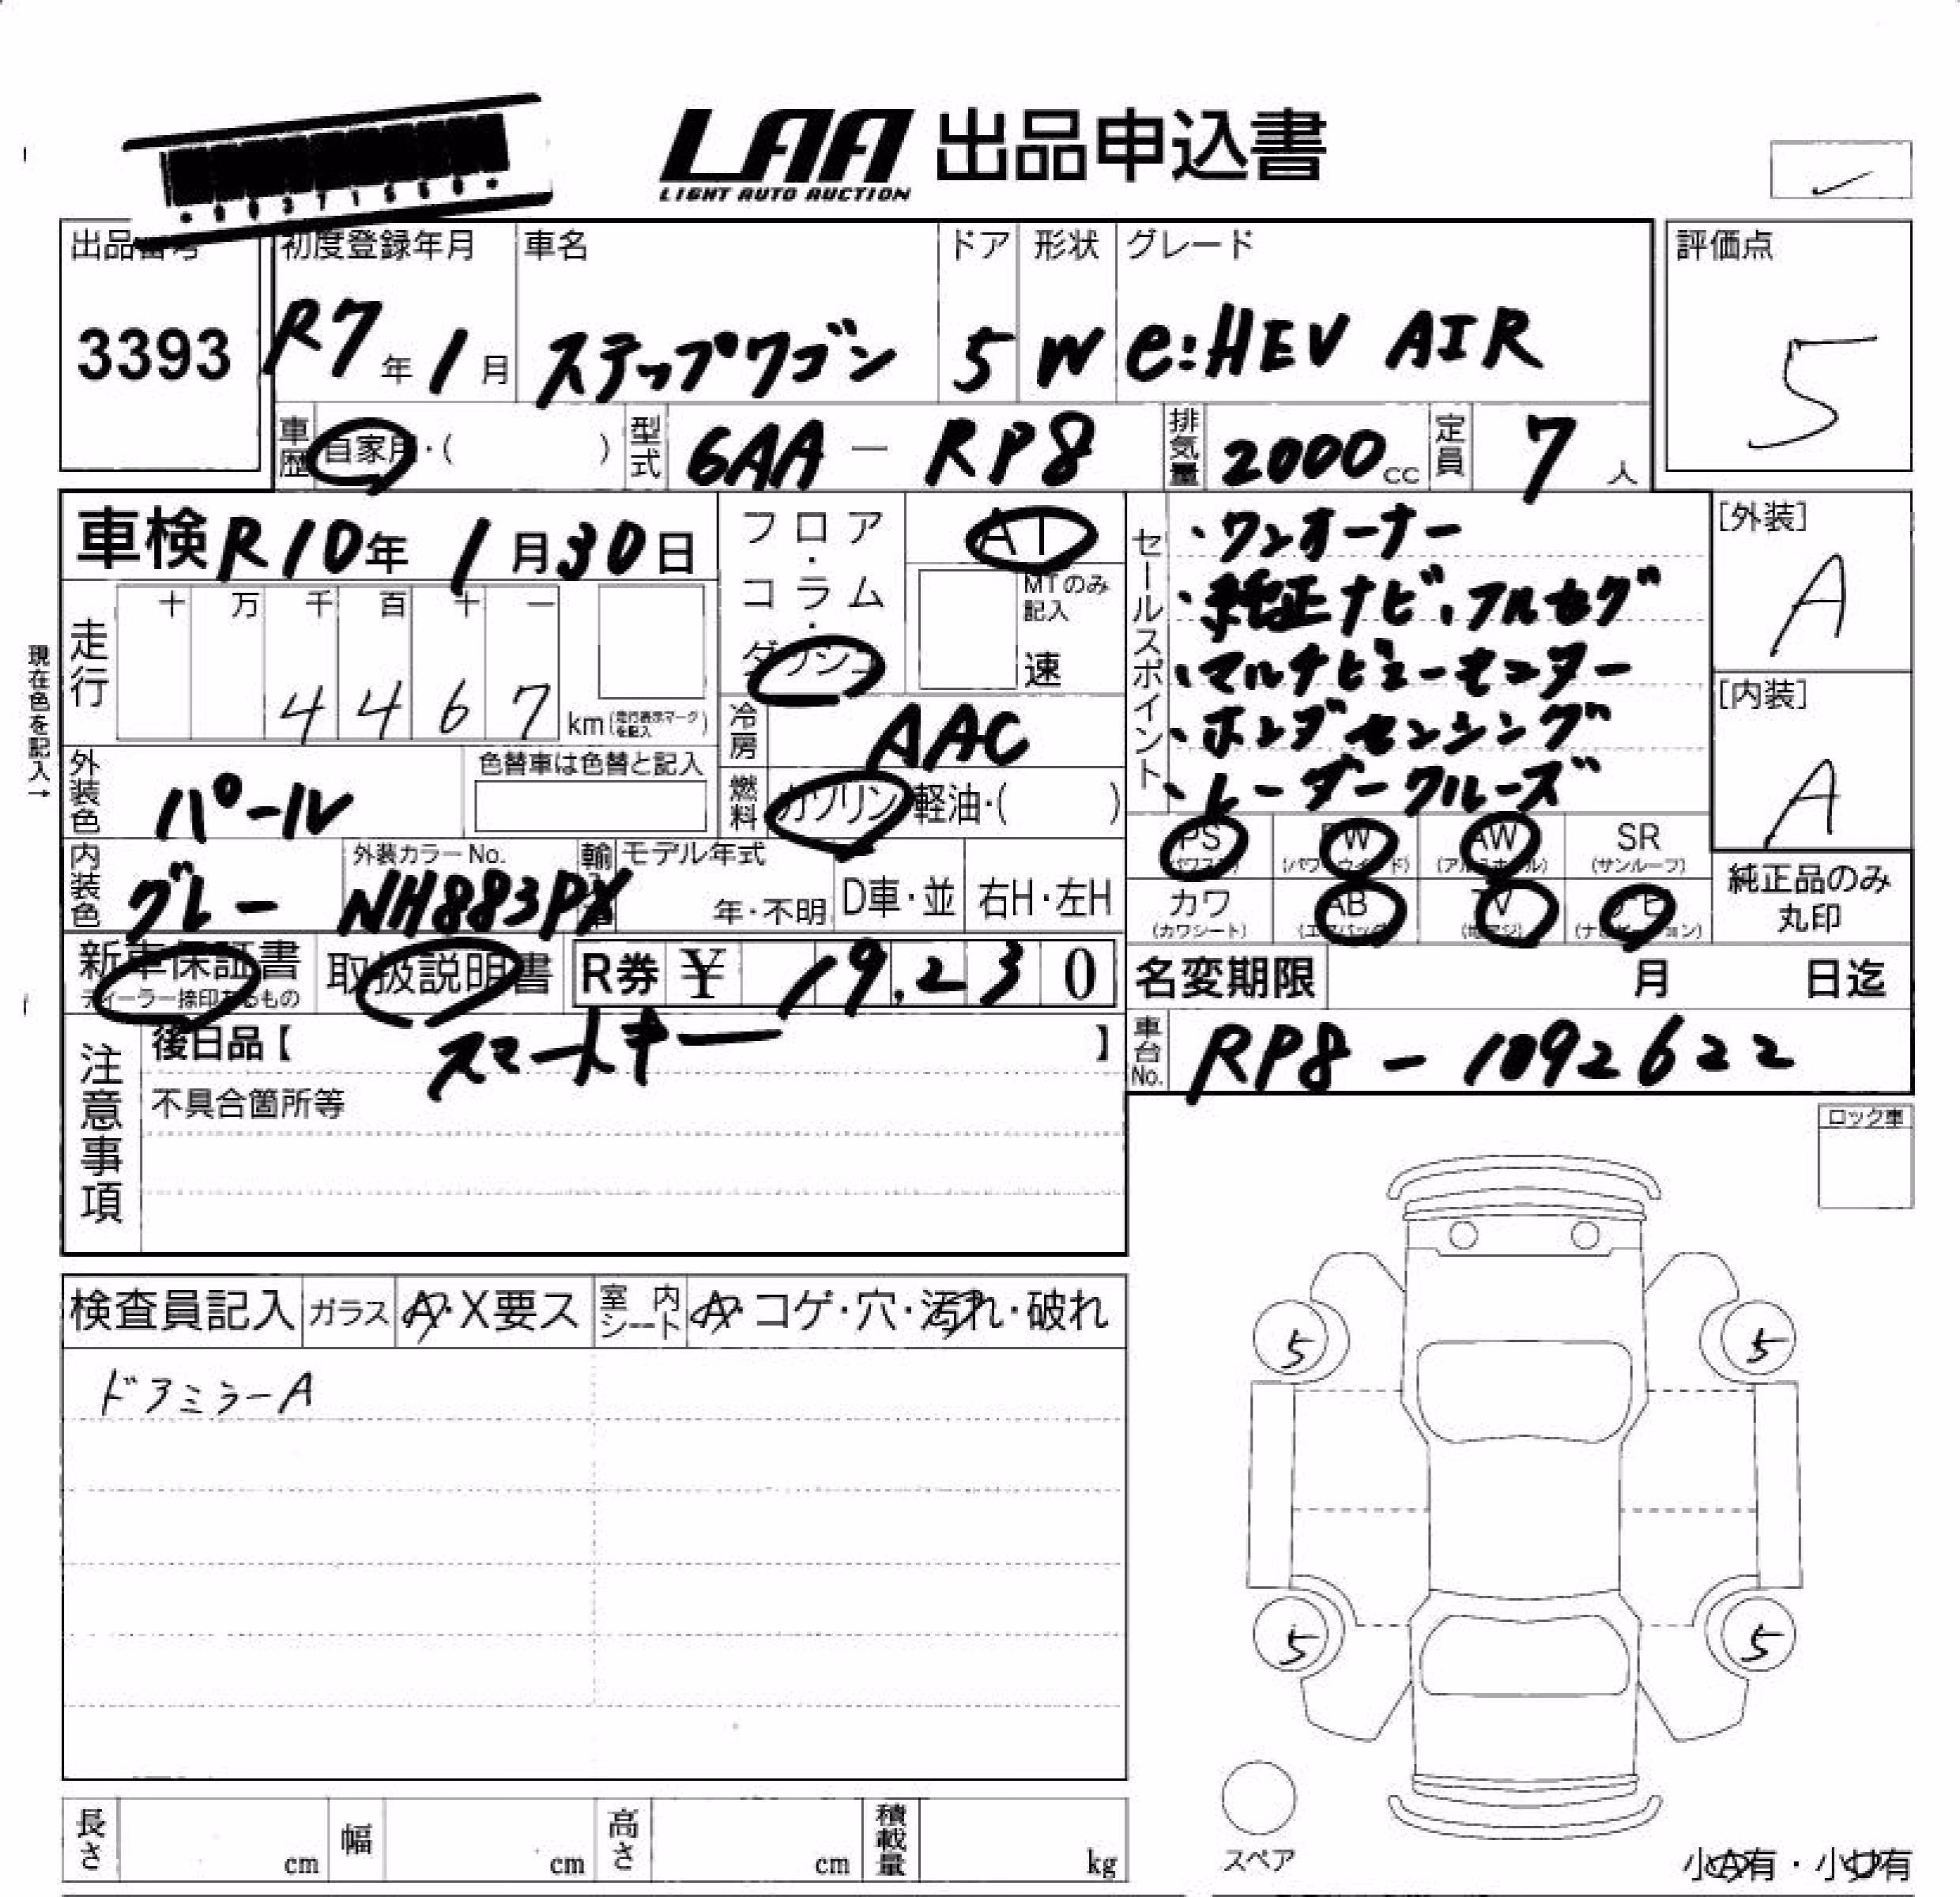 LAA 出品申込書
LIGHT AUTO AUCTION
出品番号 初度登録年月 車名 ドア 形状 グレード 評価点
3393 R7年1月 ステップワゴン 5 W e:HEV AIR 5
車歴 自家用・( ) 型式 6AA-RP8 排気量 2000cc 定員 7人
車検 R10年1月30日
フロア・コラム・ダッシュ AT
MTのみ記入 速
セールスポイント
・ワンオーナー
・純正ナビ、フルセグ
・マルチビューモニター
・ホンダセンシング
・レーダークルーズ
[外装] A
[内装] A
現在色を記入→
走行 十 万 千 百 十 一
4 4 6 7 km(走行表示マークを記入)
冷房 AAC
外装色 パール 色替車は色替と記入
燃料 ガソリン・軽油・( )
PS (パワステ) PW (パワーウィンド) AW (アルミホイル) SR (サンルーフ)
カワ (カワシート) AB (エアバック) TV (地デジ) ナビ (ナビゲーション)
純正品のみ丸印
内装色 グレー 外装カラーNo. NH883PX
モデル年式 年・不明 D車・並 右H・左H
新車保証書 ディーラー捺印あるもの 取扱説明書 R券 ¥ 19,230
名変期限 月 日迄
注意事項 後日品【 スマートキー 】
車台No. RP8-1092622
不具合箇所等
ロック車
検査員記入 ガラス A・X要ス 室内シート A・コゲ・穴・汚れ・破れ
ドアミラーA
5 5
5 5
スペア
長さ cm 幅 cm 高さ cm 積載量 kg
小A有・小U有